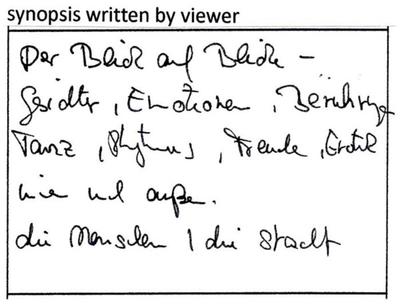 synopsis written by viewer
Der Blick auf Blicke –
Gesichter, Emotionen, Berührung
Tanz, Rhythmus, Freude, Erotik
innen und außen.
die Menschen / die Stadt